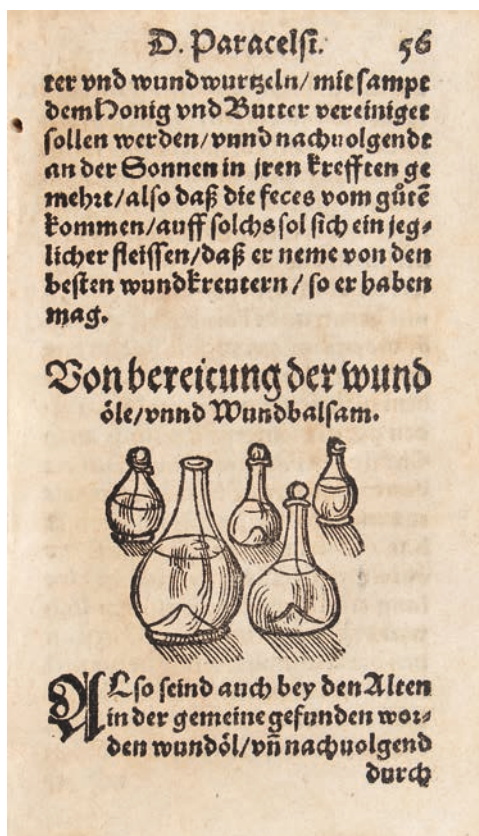 D. Paracelsi. 56
ter vnd wundwurtzeln/ mit sampt
dem Honig vnd Butter vereiniget
sollen werden/ vnnd nachuolgendt
an der Sonnen in jren krefften ge
mehrt/ also daß die feces vom gůtẽ
kommen/ auff solchs sol sich ein jeg⸗
licher fleissen/ daß er neme von den
besten wundkreutern/ so er haben
mag.
Von bereitung der wund
öle/ vnnd Wundbalsam.
ALso seind auch bey den Alten
in der gemeine gefunden wor⸗
den wundöl/ vñ nachuolgend
durch